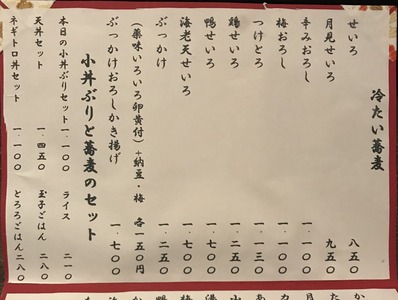 冷たい蕎麦
せいろ 八五〇
月見せいろ 九五〇
辛みおろし 一・一〇〇
梅おろし 一・一〇〇
つけとろ 一・一三〇
鶏せいろ 一・二五〇
鴨せいろ 一・七〇〇
海老天せいろ 一・七〇〇
ぶっかけ 一・二五〇
(薬味いろいろ卵黄付)+納豆・梅 各一五〇円
ぶっかけおろしかき揚げ 一・七〇〇
小丼ぶりと蕎麦のセット
本日の小丼ぶりセット 一・一〇〇 ライス 二一〇
天丼セット 一・四五〇 玉子ごはん 二八〇
ネギトロ丼セット 一・一〇〇 とろろごはん 二八〇